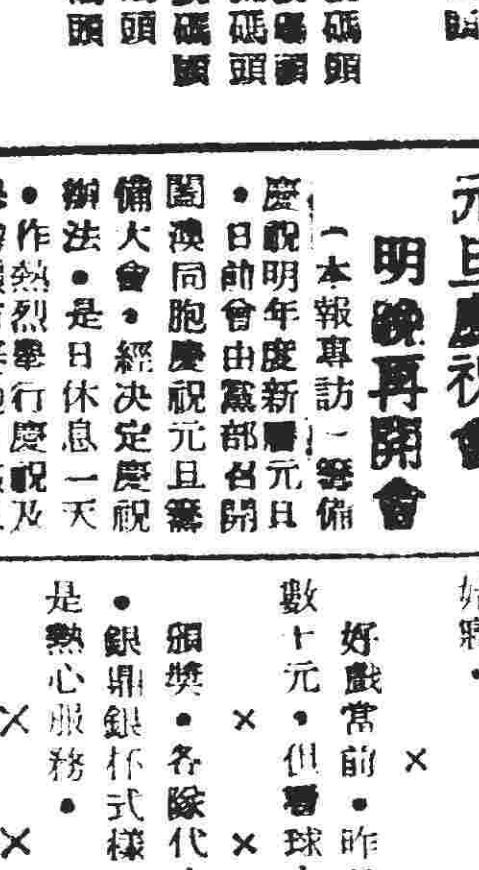 碼頭
碼頭
碼頭
頭
元旦慶祝會
明晚再開會
（本報專訪）籌備
慶祝明年度新曆元旦
●日前會由黨部召開
闔澳同胞慶祝元旦籌
備大會●經决定慶祝
辦法●是日休息一天
●作熱烈舉行慶祝及
好戲當前●昨
數十元●但看球
頒獎●各隊代
●銀鼎銀杯式樣
是熱心服務●